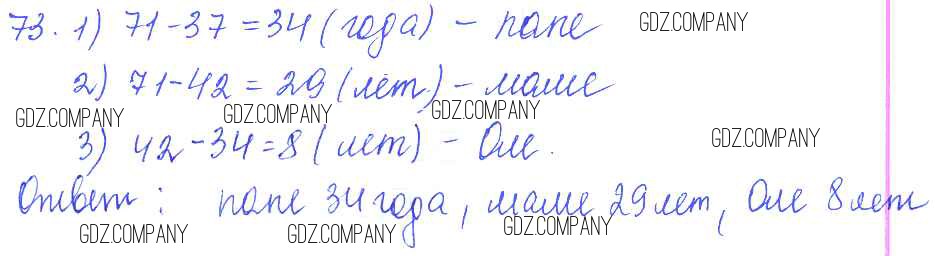 73. 1) 71-37=34 (года) - папе
GDZ.COMPANY
2) 71-42=29 (лет) - маме
GDZ.COMPANY GDZ.COMPANY GDZ.COMPANY
3) 42-34=8 (лет) - Оле.
GDZ.COMPANY
Ответ: папе 34 года, маме 29 лет, Оле 8 лет
GDZ.COMPANY GDZ.COMPANY GDZ.COMPANY